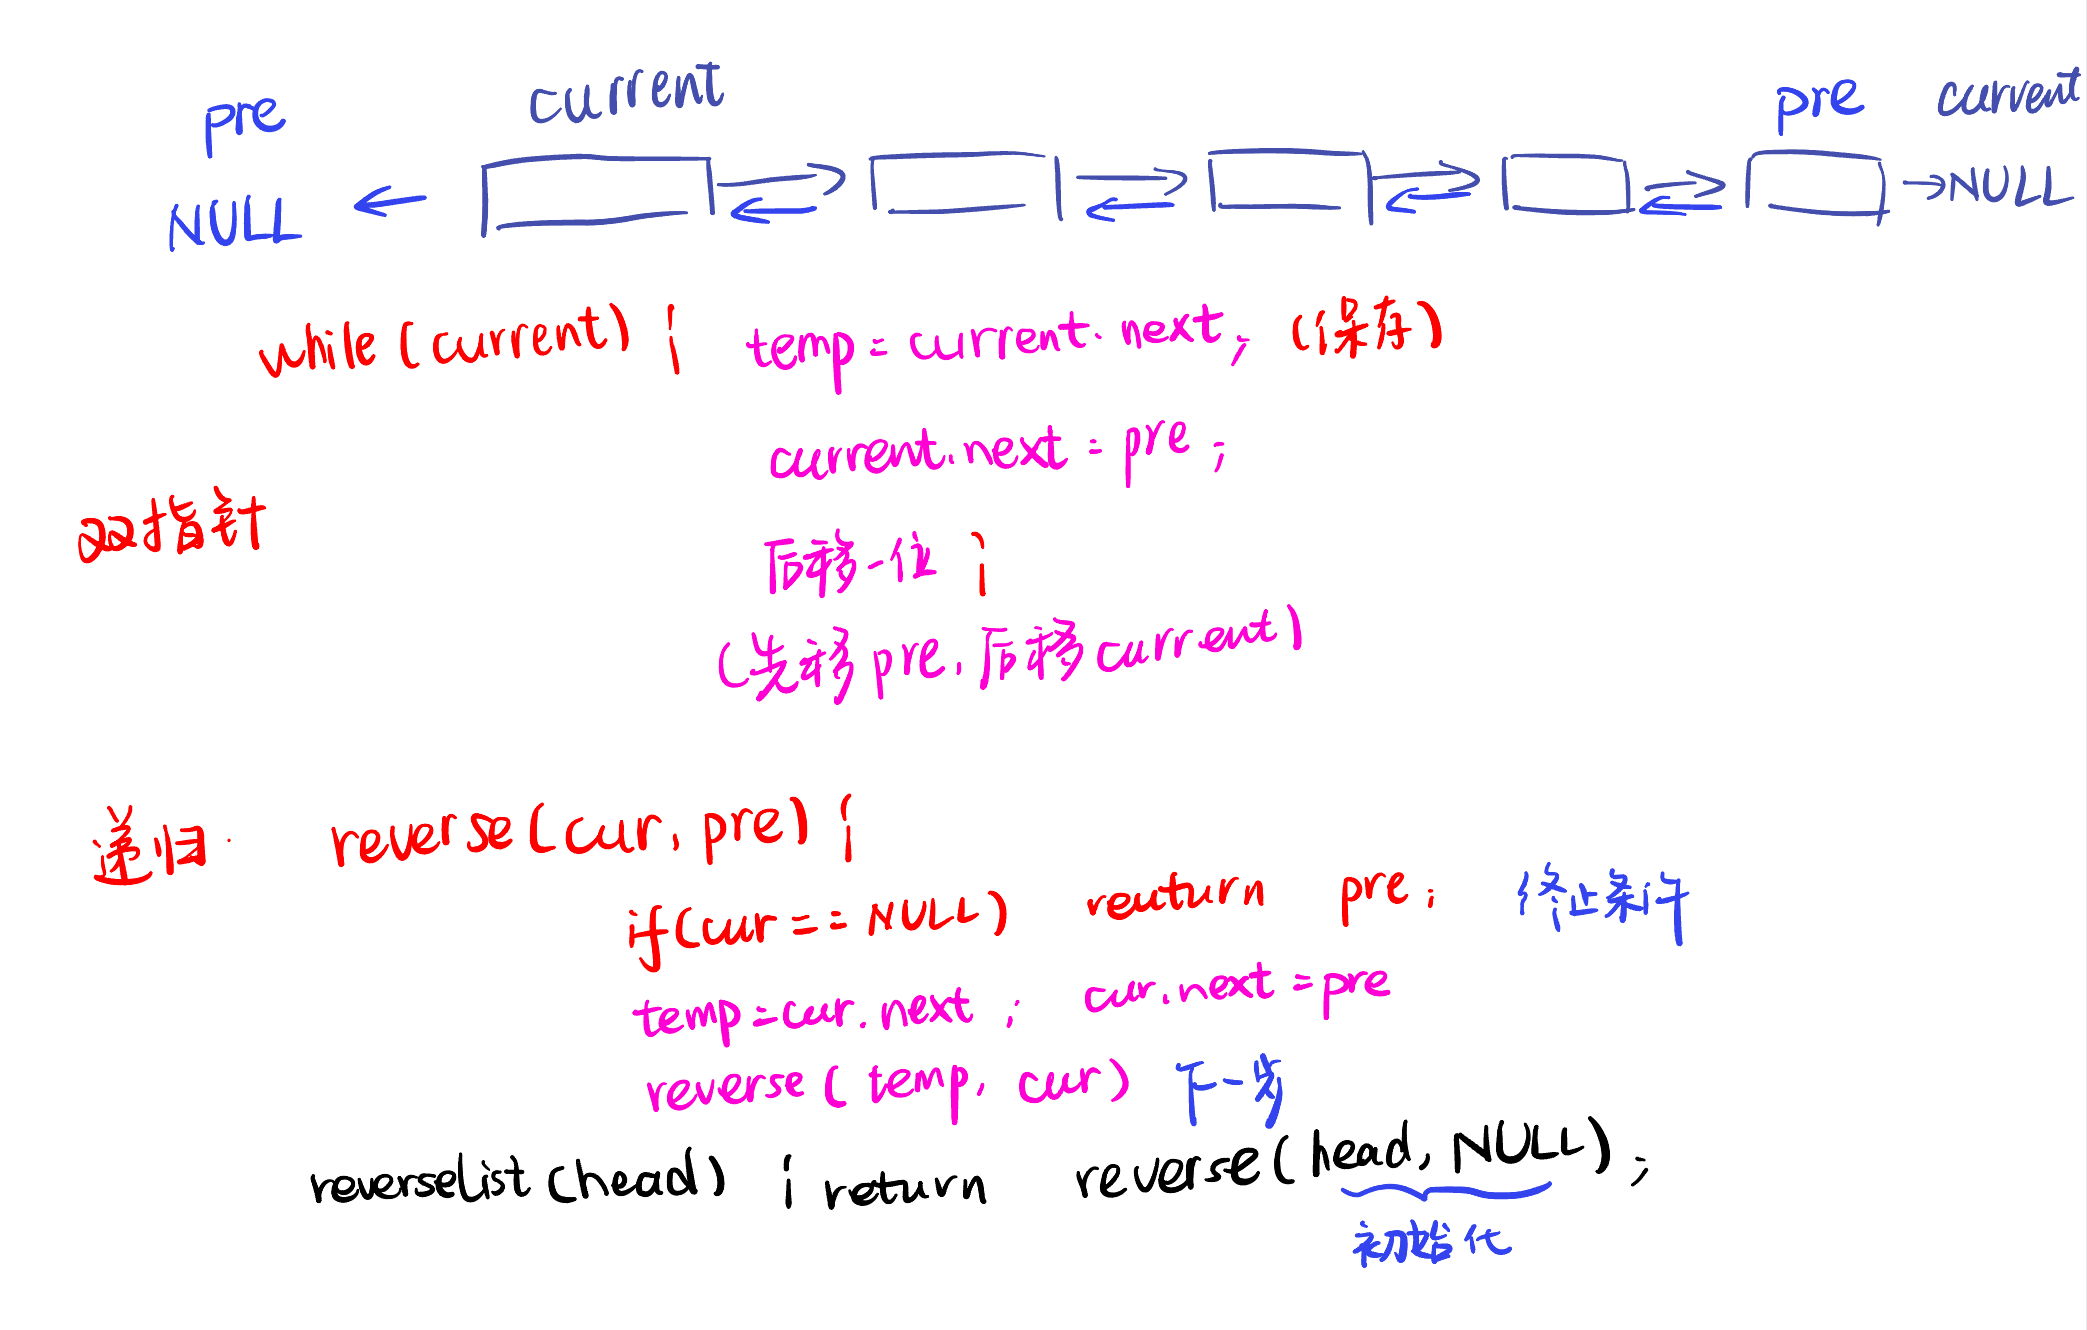 pre current pre current
NULL ← → NULL
while (current) { temp = current.next; (保存)
current.next = pre;
双指针
后移一位 }
(先移pre,后移current)
递归. reverse(cur, pre) {
if(cur == NULL) reuturn pre; 终止条件
temp=cur.next; cur.next=pre
reverse(temp, cur) 下一步
reverselist(head) { return reverse(head, NULL);
初始化